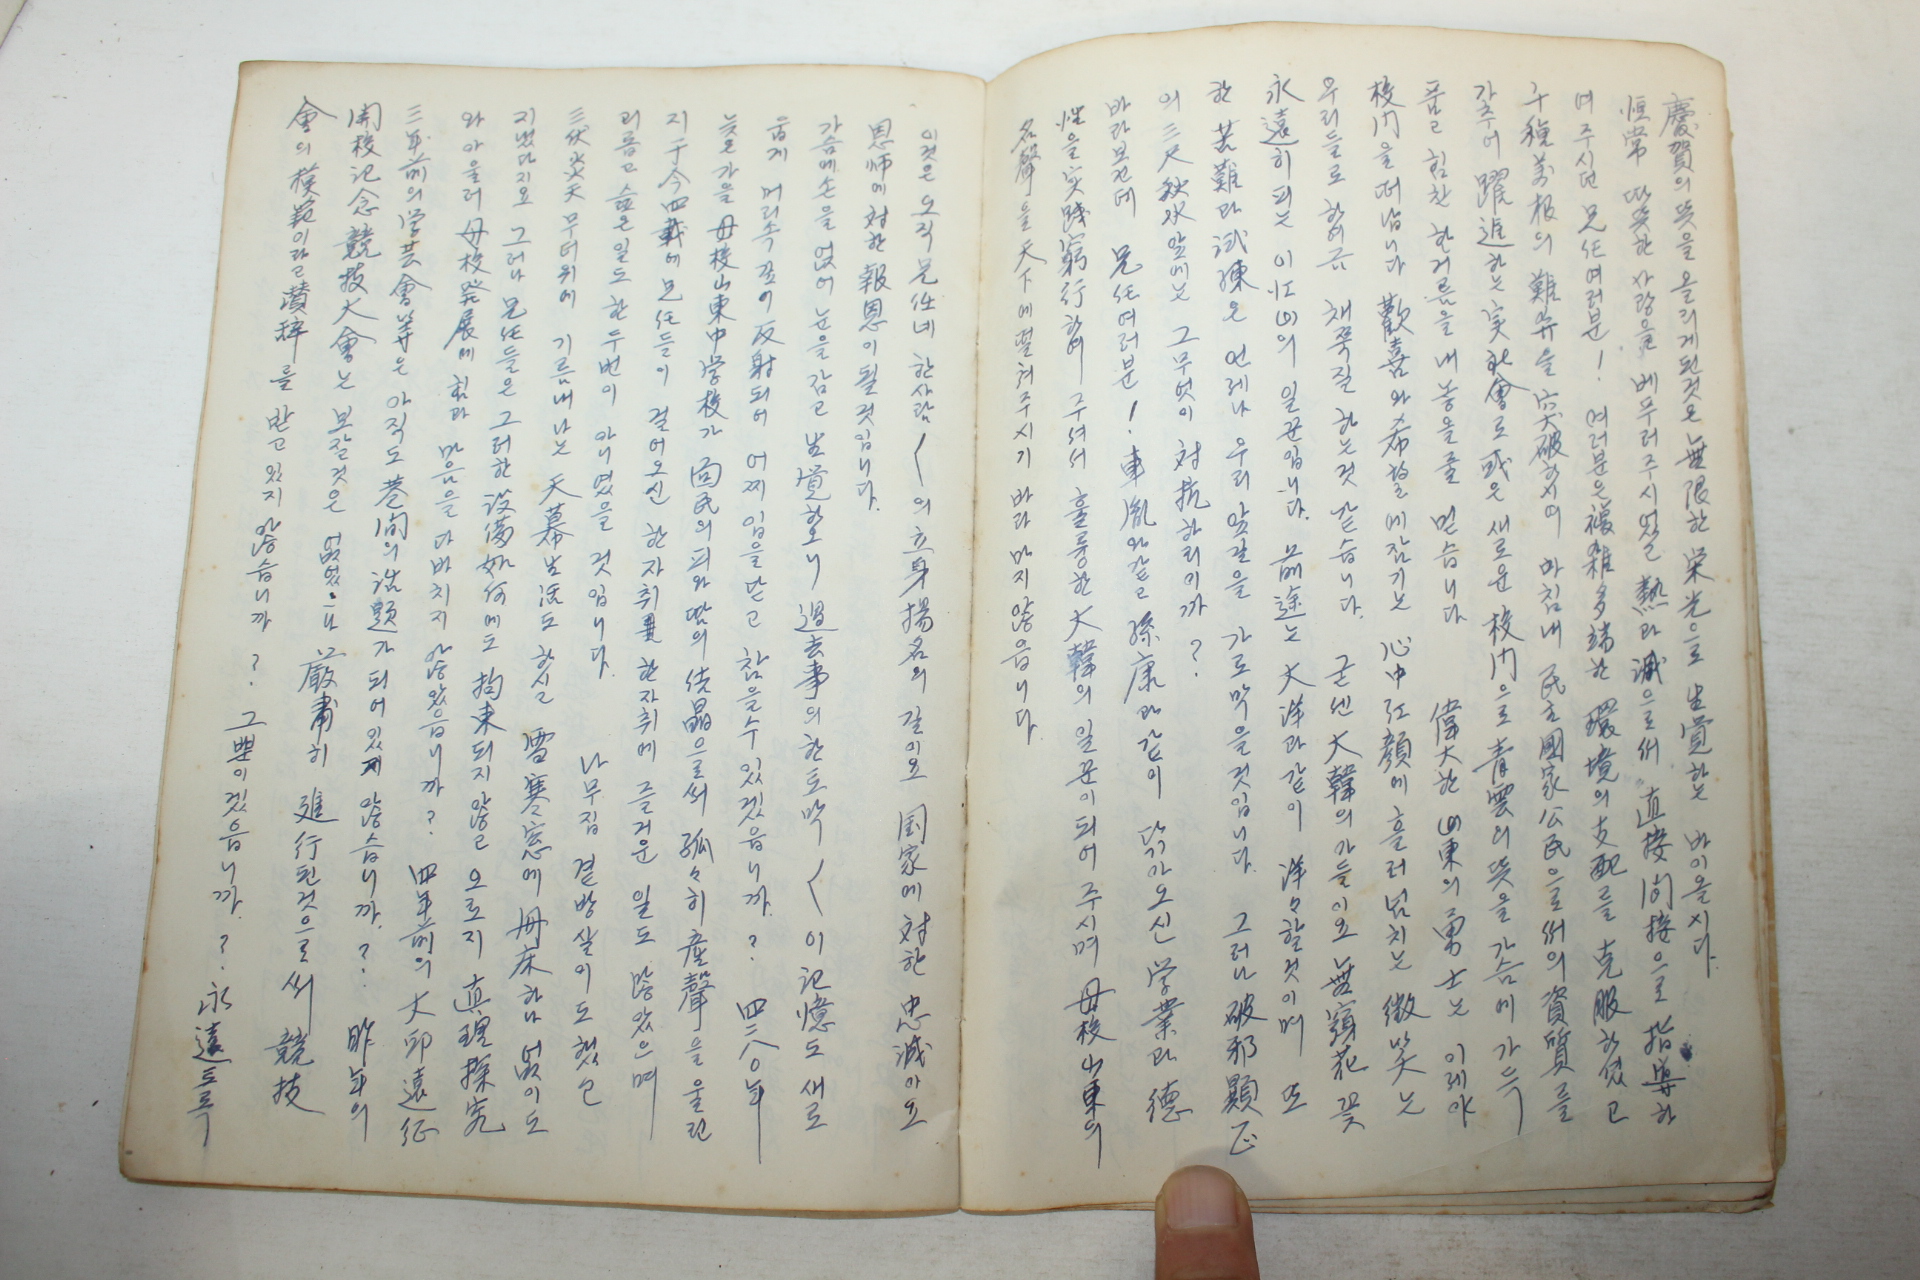 慶賀의 뜻을 올리게된것은 無限한 栄光으로 生覚하는 바이올시다.
恒常 따뜻한 사랑을 베푸러주시였고 熱과 誠으로써 直接間接으로 指導하
여 주시던 兄任여러분! 여러분은 複雜多端한 環境의 支配를 克服하였고
千種萬般의 難关을 突破하시며 마침내 民主國家公民으로써의 資質을
가추어 躍進하는 実社會로 或은 새로운 校门으로 青雲의 뜻을 가슴에 가득
품고 힘찬 한거름을 내놓을줄 믿습니다 偉大한 山東의 勇士는 이제야
校门을 떠납니다 歡喜와 希望에 잠기는 心中 红顔에 흘러넘치는 微笑는
우리들로 하여금 채쭉질 하는것 같습니다. 굳센 大韓의 아들이요 無窮花 꽃
永遠히 피는 이 江山의 일꾼입니다. 前途는 大洋과 같이 洋々할것이며 또
한 苦難과 試鍊은 언제나 우리 앞길을 가로막을것입니다. 그러나 破邪顯正
의 三尺秋水앞에는 그무엇이 対抗하리이까?
바라보건데 兄任여러분! 車胤와같고 孫康과같이 닦가오신 学業과 德
性을 实践躬行하여 주셔서 훌륭한 大韓의 일꾼이되어 주시며 母校山東의
名聲을 天下에떨쳐주시기 바라 마지않읍니다.
이것은 오직 兄任네 한사람〱의 立身揚名의 길이요 国家에 対한 忠誠이요
恩师에 対한 報恩이 될것입니다.
가슴에손을 얹어 눈을잠고 生覚하오니 過去事의 한토막〱이 記憶도 새로
웁게 머리속 깊이 反射되어 어찌 입을 닫고 참을수 있겠읍니까.? 四二八〇年
늦은가을 母校山東中学校가 面民의 피와 땀의 结晶으로써 孤々히 産聲을 울린
지 于今四載에 兄任들이 걸어오신 한자취 한자취에 즐거운 일도 많았으며
괴롭고 슲은일도 한두번이 아니였을 것입니다. 나무집 곁방살이도 했고
三伏炎天 무더위에 기름내나는 天幕生活도 하시고 雪寒窓에 册床하나 없이도
지냈다지요 그러나 兄任들은 그러한 设備如何에도 拘束되지 않고 오로지 真理探究
와 아울러 母校発展에 힘과 마음을 다바치지 않았읍니까? 四年前의 大邱遠征
三年前의 学芸會等은 아직도 巷间의 話題가되어있지 않습니까.? 昨年의
開校記念競技大會는 보잘것은 없었으나 嚴肅히 進行된것으로써 競技
會의 模範이라고 讃辞를 받고있지 않습니까? 그뿐이겠읍니까.? 永遠토록